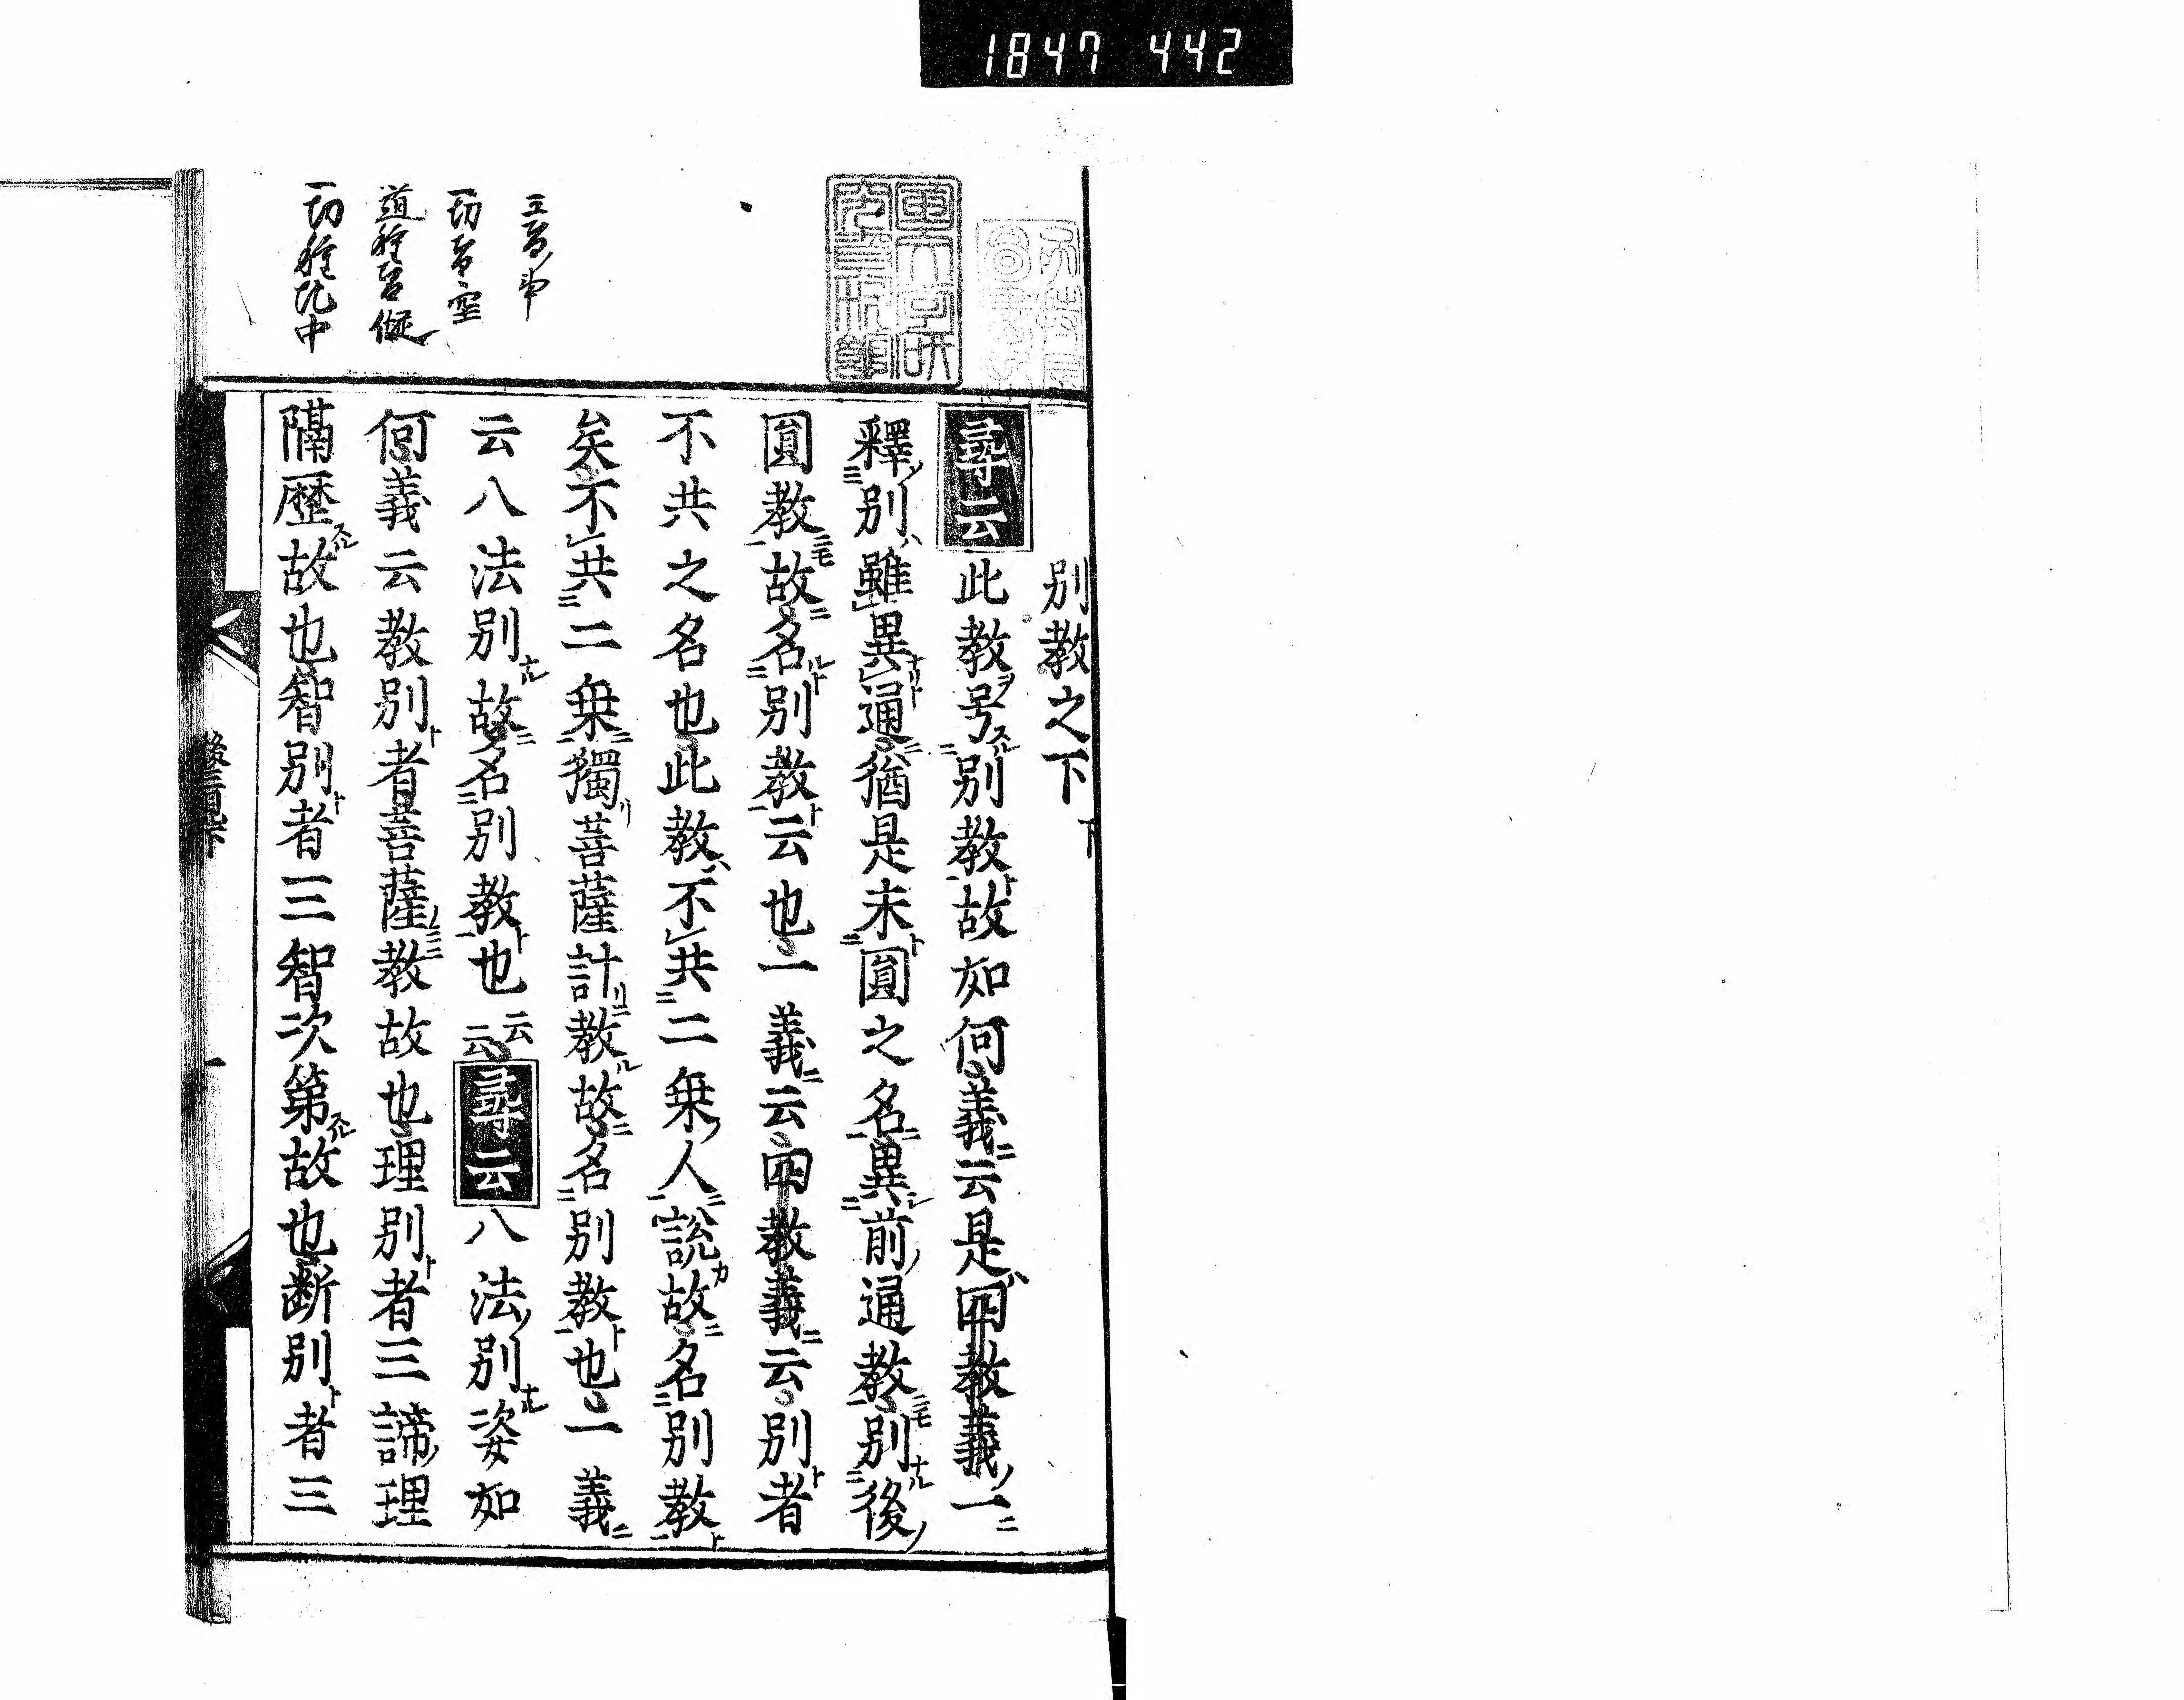 1847 442
別教之下
尋云此教号別教故如何義云是四教義一
釋別雖異通猶是未圓之名異前通教別後
圓教故名別教云也一義云四教義云別者
不共之名也此教不共二乗人說故名別教
矣不共二乗獨菩薩計教故名別教也一義
云八法別故名別教也云云尋云八法別姿如
何義云教別者菩薩教故也理別者三諦理
隔歷故也智別者三智次第故也断別者三
三智事
一切智空
道種智仮
一切種化中